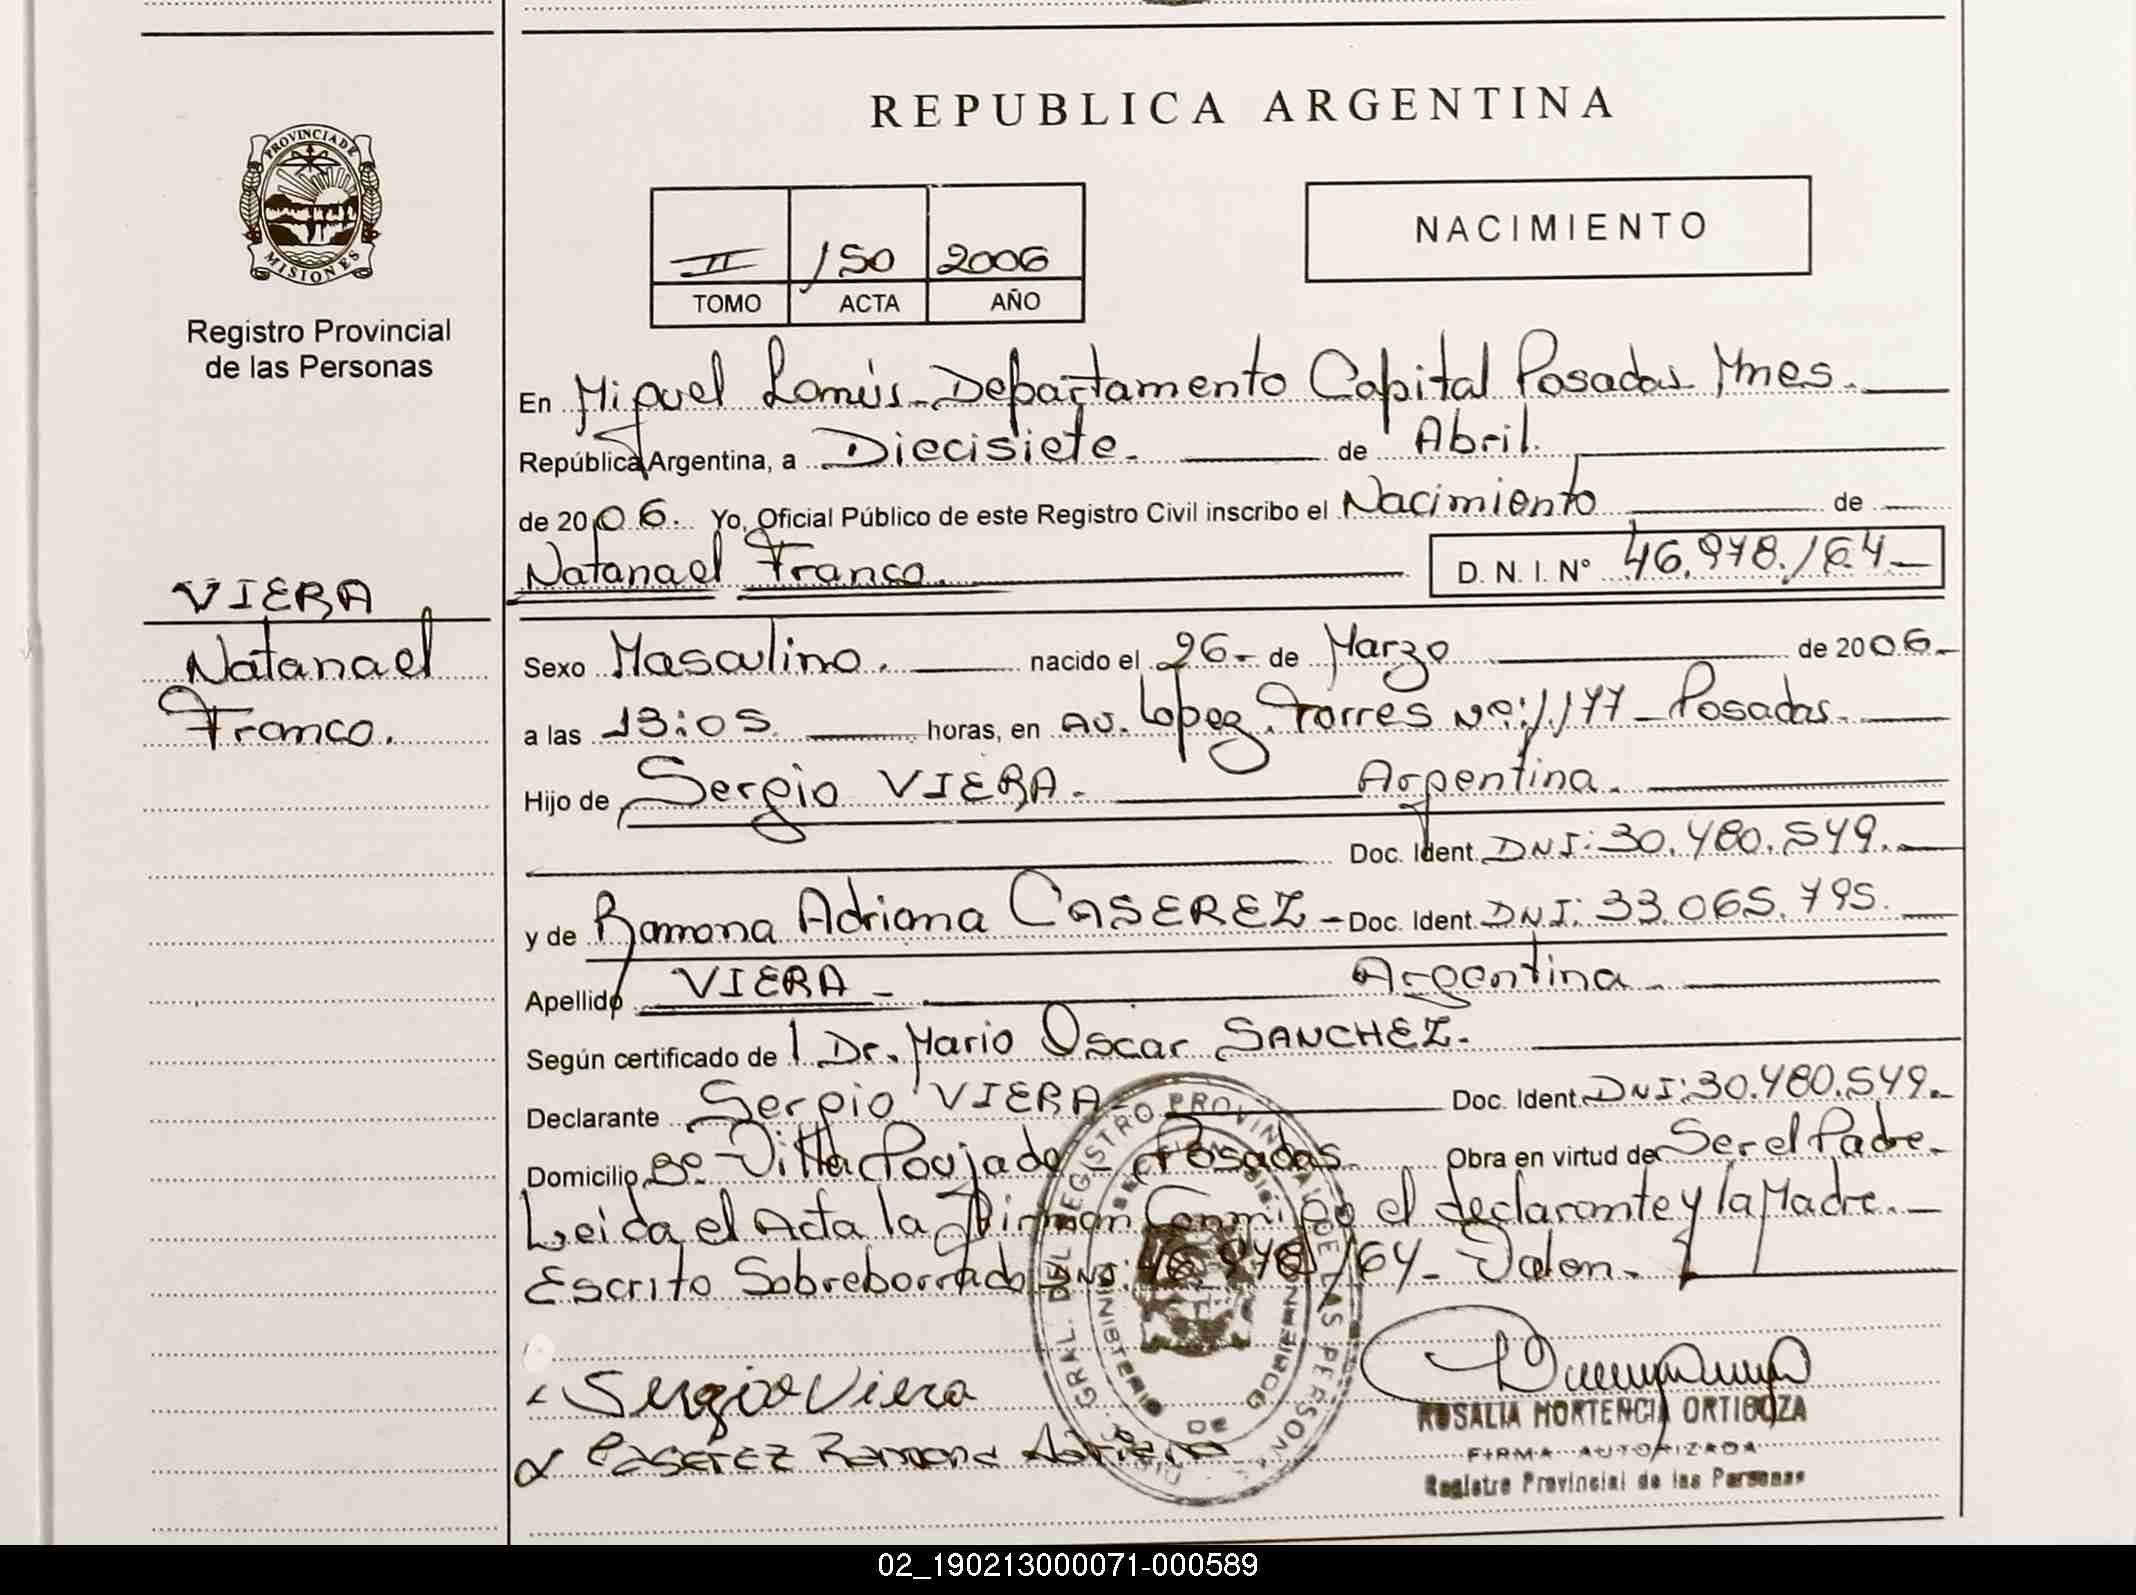 REPUBLICA ARGENTINA
PROVINCIA DE
MISIONES
Registro Provincial
de las Personas
II /50 2006
TOMO ACTA AÑO
NACIMIENTO
En Miguel Lanús - Departamento Capital Posadas Mnes.
República Argentina, a Diecisiete. de Abril.
de 2006. Yo, Oficial Público de este Registro Civil inscribo el Nacimiento de
Natanael Franco. D. N. I. N° 46.978./64-
VIERA
Natanael
Franco.
Sexo Masculino. nacido el 26- de Marzo de 2006-
a las 13:05 horas, en Av. Lopez Torres Nº: 1.177 - Posadas.
Hijo de Sergio VIERA. Argentina.
Doc. Ident. DNI: 30.480.549.
y de Ramona Adriana CASEREZ - Doc. Ident. DNI: 33.065.795.
Apellido VIERA - Argentina.
Según certificado de l Dr. Mario Oscar SANCHEZ.
Declarante Sergio VIERA - Doc. Ident. DNI: 30.480.549.-
Domicilio Bº- Villa Poujade - Posadas. Obra en virtud de Ser el Padre.
Leida el Acta la Firman Conmigo el declarante y la Madre. -
Escrito Sobreborrado DNI: 46.978/64- Valen-
Sergio Viera
Caserez Ramona Adriana
GRAL. DEL REGISTRO PROVINCIAL DE LAS PERSONAS
ROSALIA HORTENCIA ORTIGOZA
FIRMA AUTORIZADA
Registro Provincial de las Personas
02_190213000071-000589